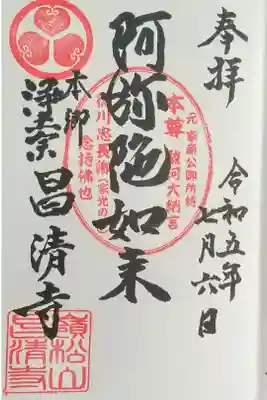 奉拝
令和五年
七月六日
阿弥陀如来
本尊
駿河大納言
徳川忠長卿（家光の
念持佛也
本郷
浄土宗
昌清寺
嶺松山
昌清寺